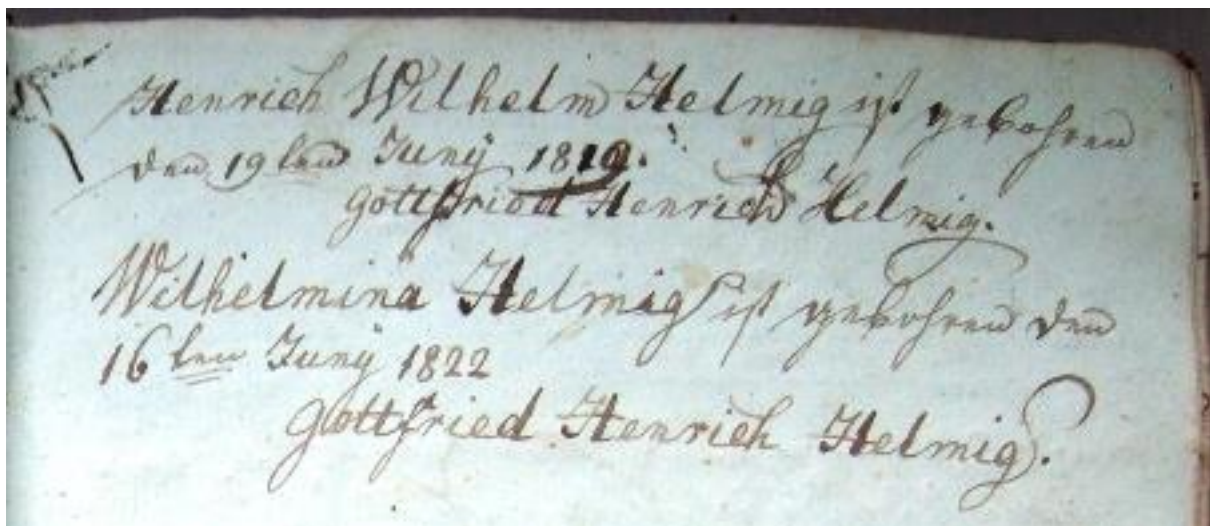 Henrich Wilhelm Helmig ist gebohren
den 19ten Juny 1819.
Gottfried Henrich Helmig.
Wilhelmina Helmig ist gebohren den
16ten Juny 1822
Gottfried Henrich Helmig.